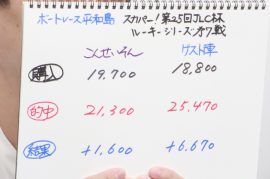 ボートレース平和島 スカパー!第25回JLC杯
ルーキーシリーズ第7戦
こんせいぞん ゲスト陣
購入 19,700 18,800
的中 21,300 25,470
結果 +1,600 +6,670